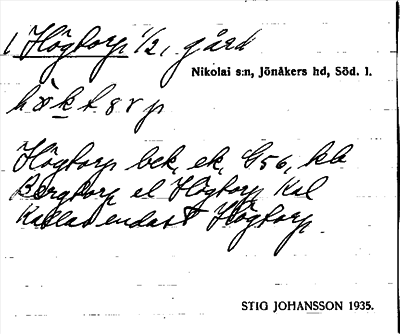 1 Högtorp 1/2, gård
Nikolai s:n, Jönåkers hd, Söd. l.
Högtorp bek, ek, G56, kb
Bergtorp el Högtorp Kal
Kallas endast Högtorp.
STIG JOHANSSON 1935.